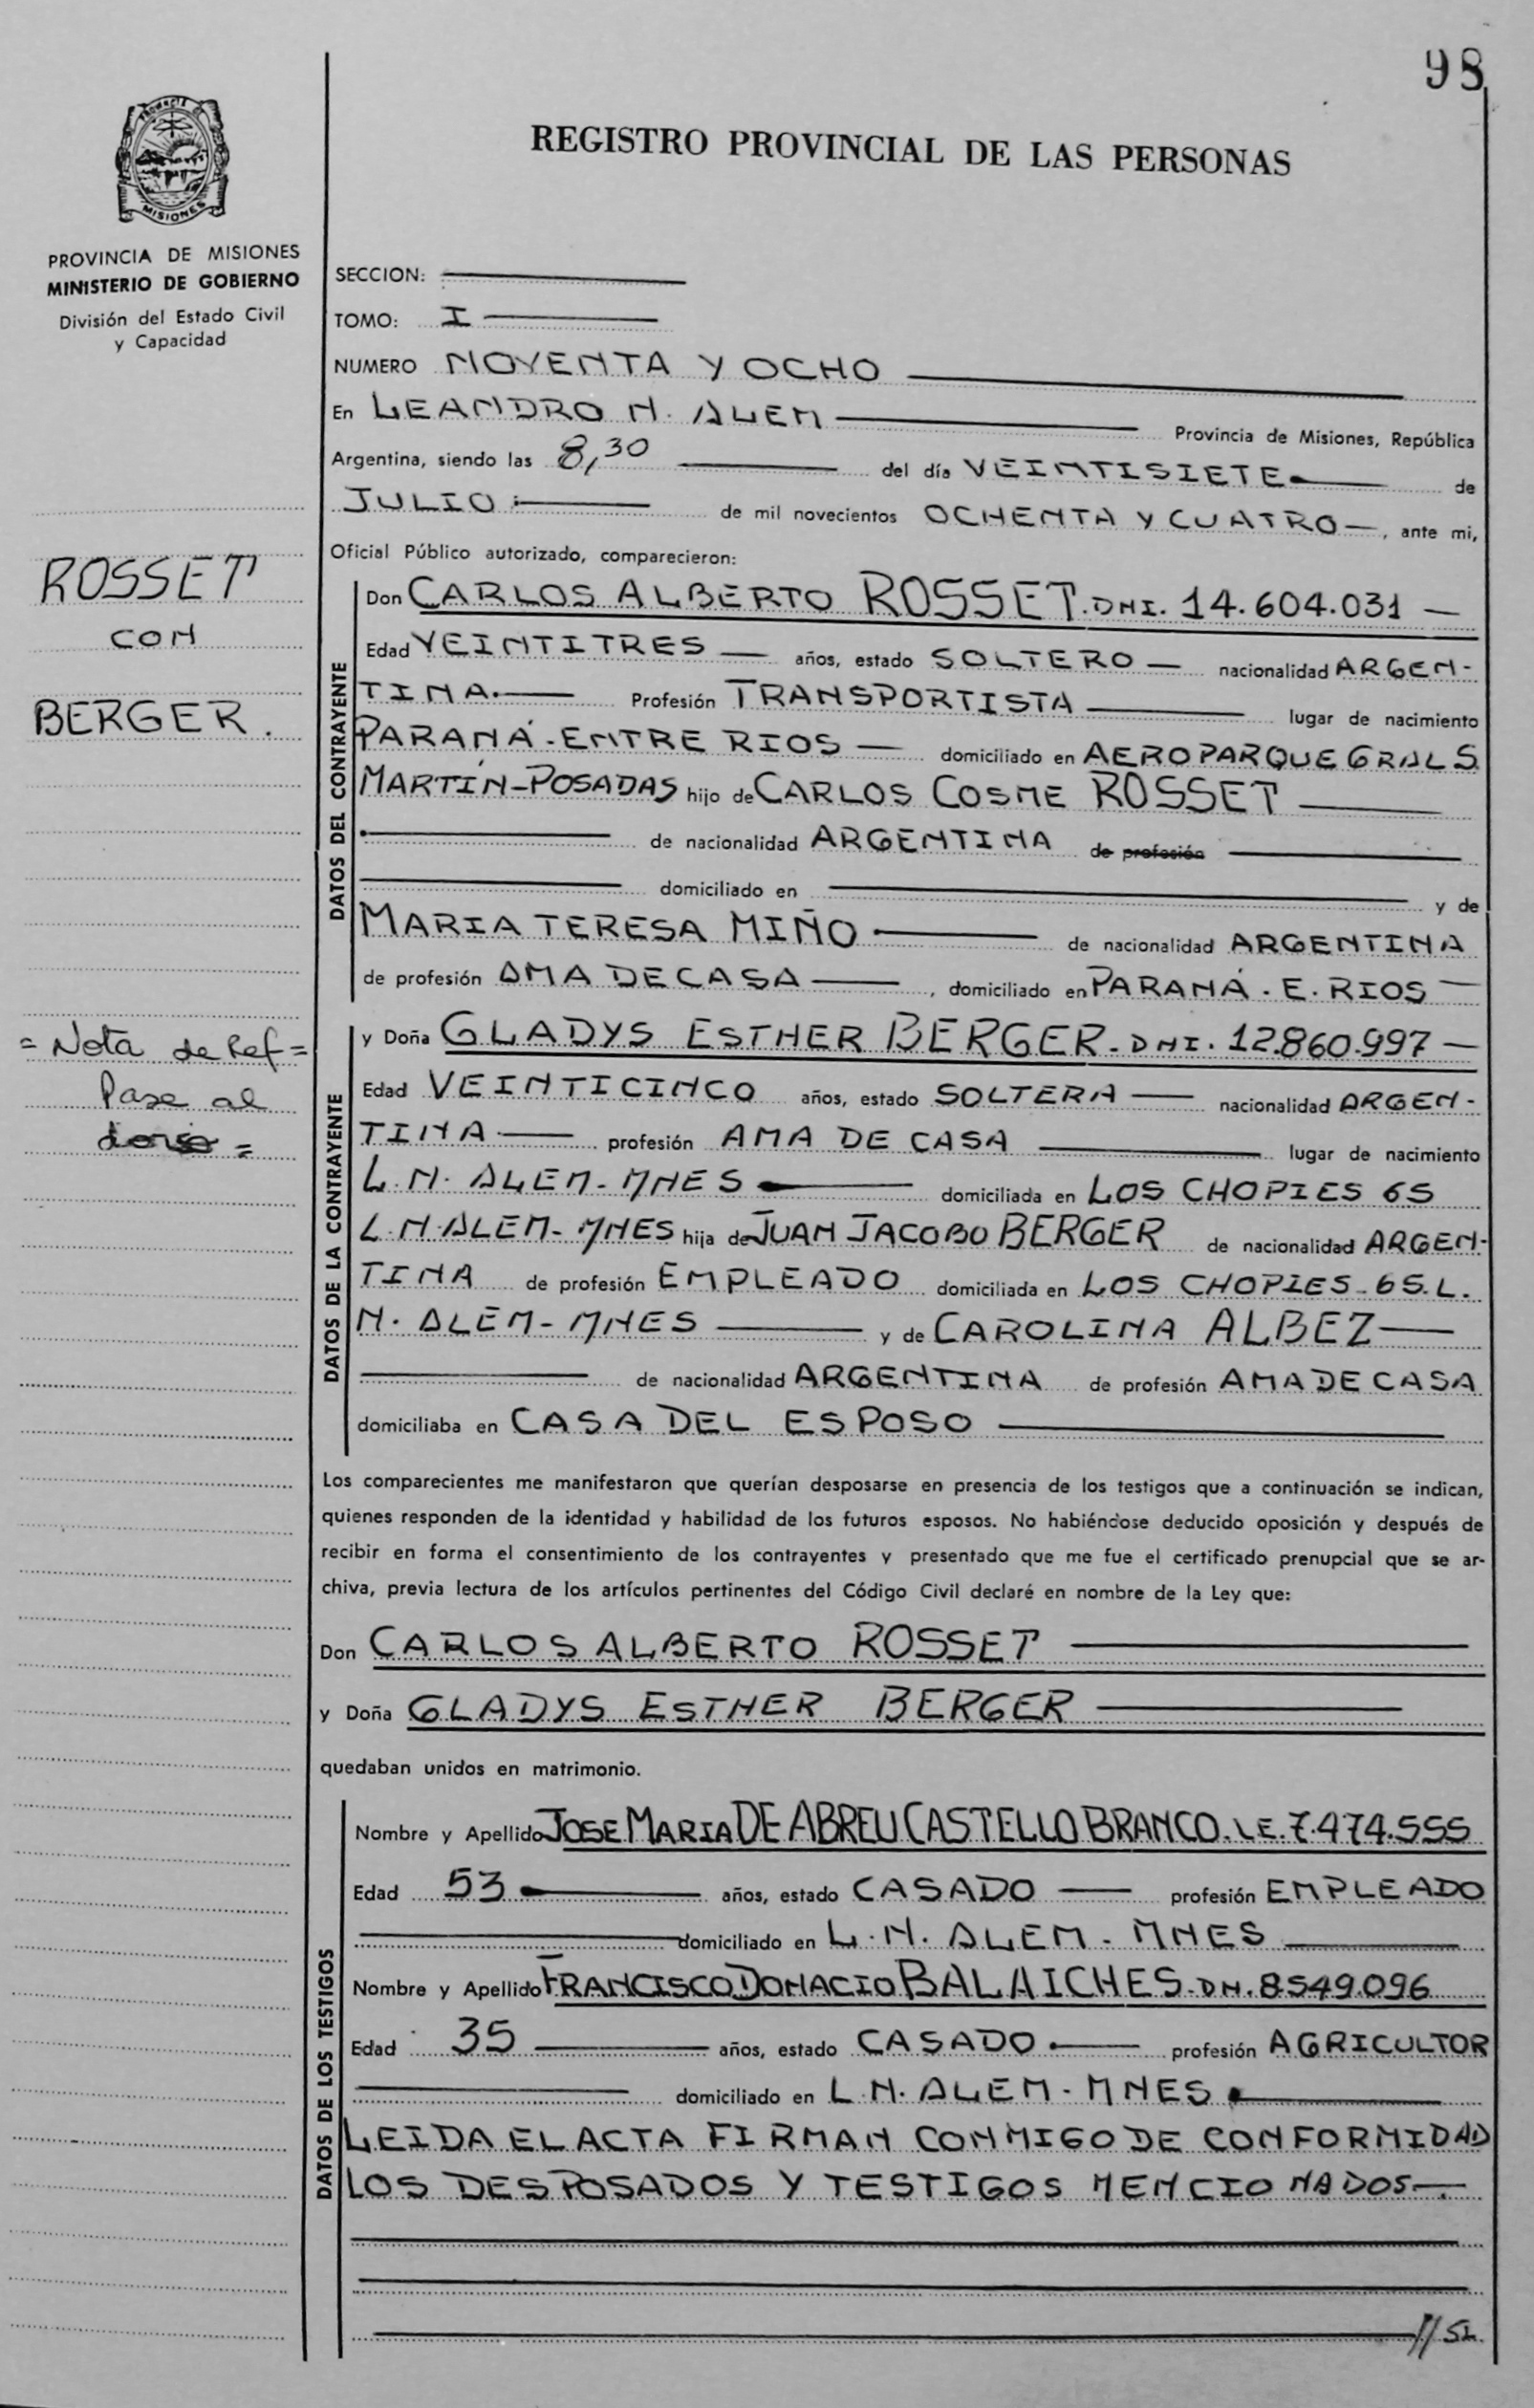 98
REGISTRO PROVINCIAL DE LAS PERSONAS
MISIONES
PROVINCIA DE MISIONES
MINISTERIO DE GOBIERNO
División del Estado Civil
y Capacidad
SECCION:
TOMO: I
NUMERO NOVENTA Y OCHO
En LEANDRO N. ALEM Provincia de Misiones, República
Argentina, siendo las 8,30 del día VEINTISIETE de
JULIO de mil novecientos OCHENTA Y CUATRO, ante mi,
Oficial Público autorizado, comparecieron:
ROSSET
CON
BERGER.
DATOS DEL CONTRAYENTE
Don CARLOS ALBERTO ROSSET. DNI. 14.604.031
Edad VEINTITRES años, estado SOLTERO nacionalidad ARGEN-
TINA. Profesión TRANSPORTISTA lugar de nacimiento
PARANÁ-ENTRE RIOS domiciliado en AEROPARQUE GRAL S.
MARTÍN-POSADAS hijo de CARLOS COSME ROSSET
de nacionalidad ARGENTINA de profesión
domiciliado en y de
MARIA TERESA MIÑO de nacionalidad ARGENTINA
de profesión AMA DE CASA, domiciliado en PARANÁ. E. RIOS
= Nota de Ref =
Pase al
dorso =
DATOS DE LA CONTRAYENTE
y Doña GLADYS ESTHER BERGER. DNI. 12.860.997
Edad VEINTICINCO años, estado SOLTERA nacionalidad ARGEN-
TINA profesión AMA DE CASA lugar de nacimiento
L.N. ALEM-MNES domiciliada en LOS CHOPIES 65
L.N. ALEM-MNES hija de JUAN JACOBO BERGER de nacionalidad ARGEN-
TINA de profesión EMPLEADO domiciliada en LOS CHOPIES-65.L.
N. ALEM-MNES y de CAROLINA ALBEZ
de nacionalidad ARGENTINA de profesión AMA DE CASA
domiciliaba en CASA DEL ESPOSO
Los comparecientes me manifestaron que querían desposarse en presencia de los testigos que a continuación se indican,
quienes responden de la identidad y habilidad de los futuros esposos. No habiéndose deducido oposición y después de
recibir en forma el consentimiento de los contrayentes y presentado que me fue el certificado prenupcial que se ar-
chiva, previa lectura de los artículos pertinentes del Código Civil declaré en nombre de la Ley que:
Don CARLOS ALBERTO ROSSET
y Doña GLADYS ESTHER BERGER
quedaban unidos en matrimonio.
DATOS DE LOS TESTIGOS
Nombre y Apellido JOSE MARIA DE ABREU CASTELLO BRANCO. L.E. 7.474.555
Edad 53 años, estado CASADO profesión EMPLEADO
domiciliado en L.N. ALEM-MNES
Nombre y Apellido FRANCISCO DONACIO BALAICHES-DN. 8549.096
Edad 35 años, estado CASADO profesión AGRICULTOR
domiciliado en L.N. ALEM-MNES
LEIDA EL ACTA FIRMAN CONMIGO DE CONFORMIDAD
LOS DESPOSADOS Y TESTIGOS MENCIONADOS-.